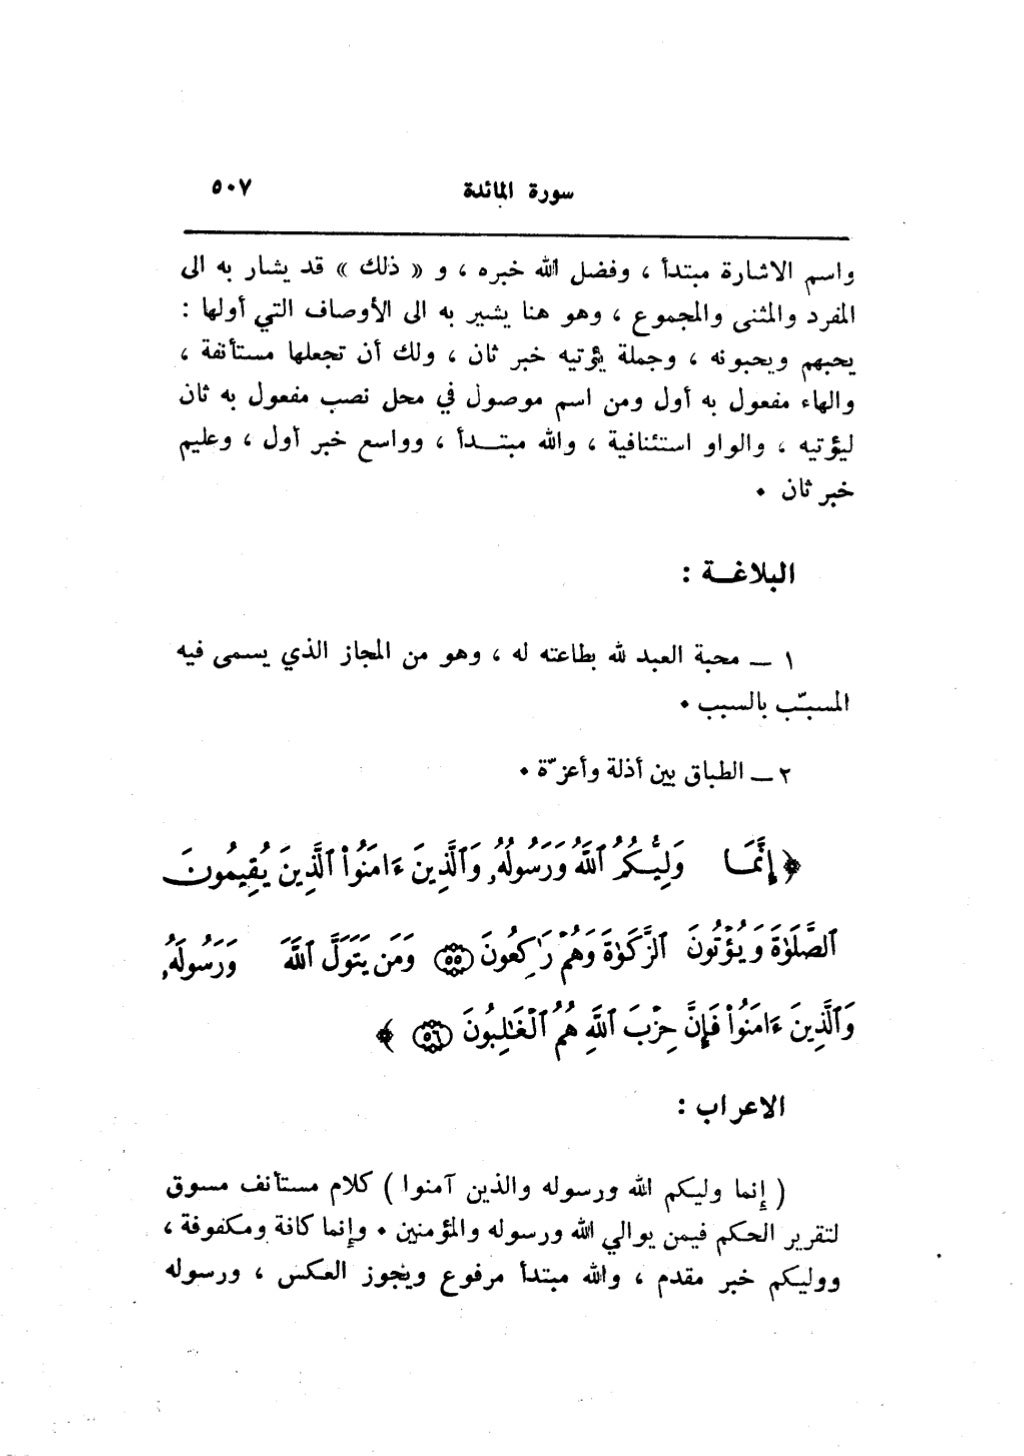 سورة المائدة ٥٠٧
واسم الاشارة مبتدأ ، وفضل الله خبره ، و « ذلك » قد يشار به الى
المفرد والمثنى والمجموع ، وهو هنا يشير به الى الأوصاف التي أولها :
يحبهم ويحبونه ، وجملة يؤتيه خبر ثان ، ولك أن تجعلها مستأنفة ،
والهاء مفعول به أول ومن اسم موصول في محل نصب مفعول به ثان
ليؤتيه ، والواو استئنافية ، والله مبتــدأ ، وواسع خبر أول ، وعليم
خبر ثان ٠
البلاغــة :
١ ــ محبة العبد لله بطاعته له ، وهو من المجاز الذي يسمى فيه
المسبّب بالسبب ٠
٢ ــ الطباق بين أذلة وأعزّة ٠
﴿ إِنَّمَا وَلِيُّكُمُ ٱللَّهُ وَرَسُولُهُۥ وَٱلَّذِينَ ءَامَنُواْ ٱلَّذِينَ يُقِيمُونَ
ٱلصَّلَوٰةَ وَيُؤۡتُونَ ٱلزَّكَوٰةَ وَهُمۡ رَٰكِعُونَ ٥٥ وَمَن يَتَوَلَّ ٱللَّهَ وَرَسُولَهُۥ
وَٱلَّذِينَ ءَامَنُواْ فَإِنَّ حِزۡبَ ٱللَّهِ هُمُ ٱلۡغَٰلِبُونَ ٥٦ ﴾
الاعراب :
( إنما وليكم الله ورسوله والذين آمنوا ) كلام مستأنف مسوق
لتقرير الحكم فيمن يوالي الله ورسوله والمؤمنين ٠ وإنما كافة ومكفوفة ،
ووليكم خبر مقدم ، والله مبتدأ مرفوع ويجوز العكس ، ورسوله